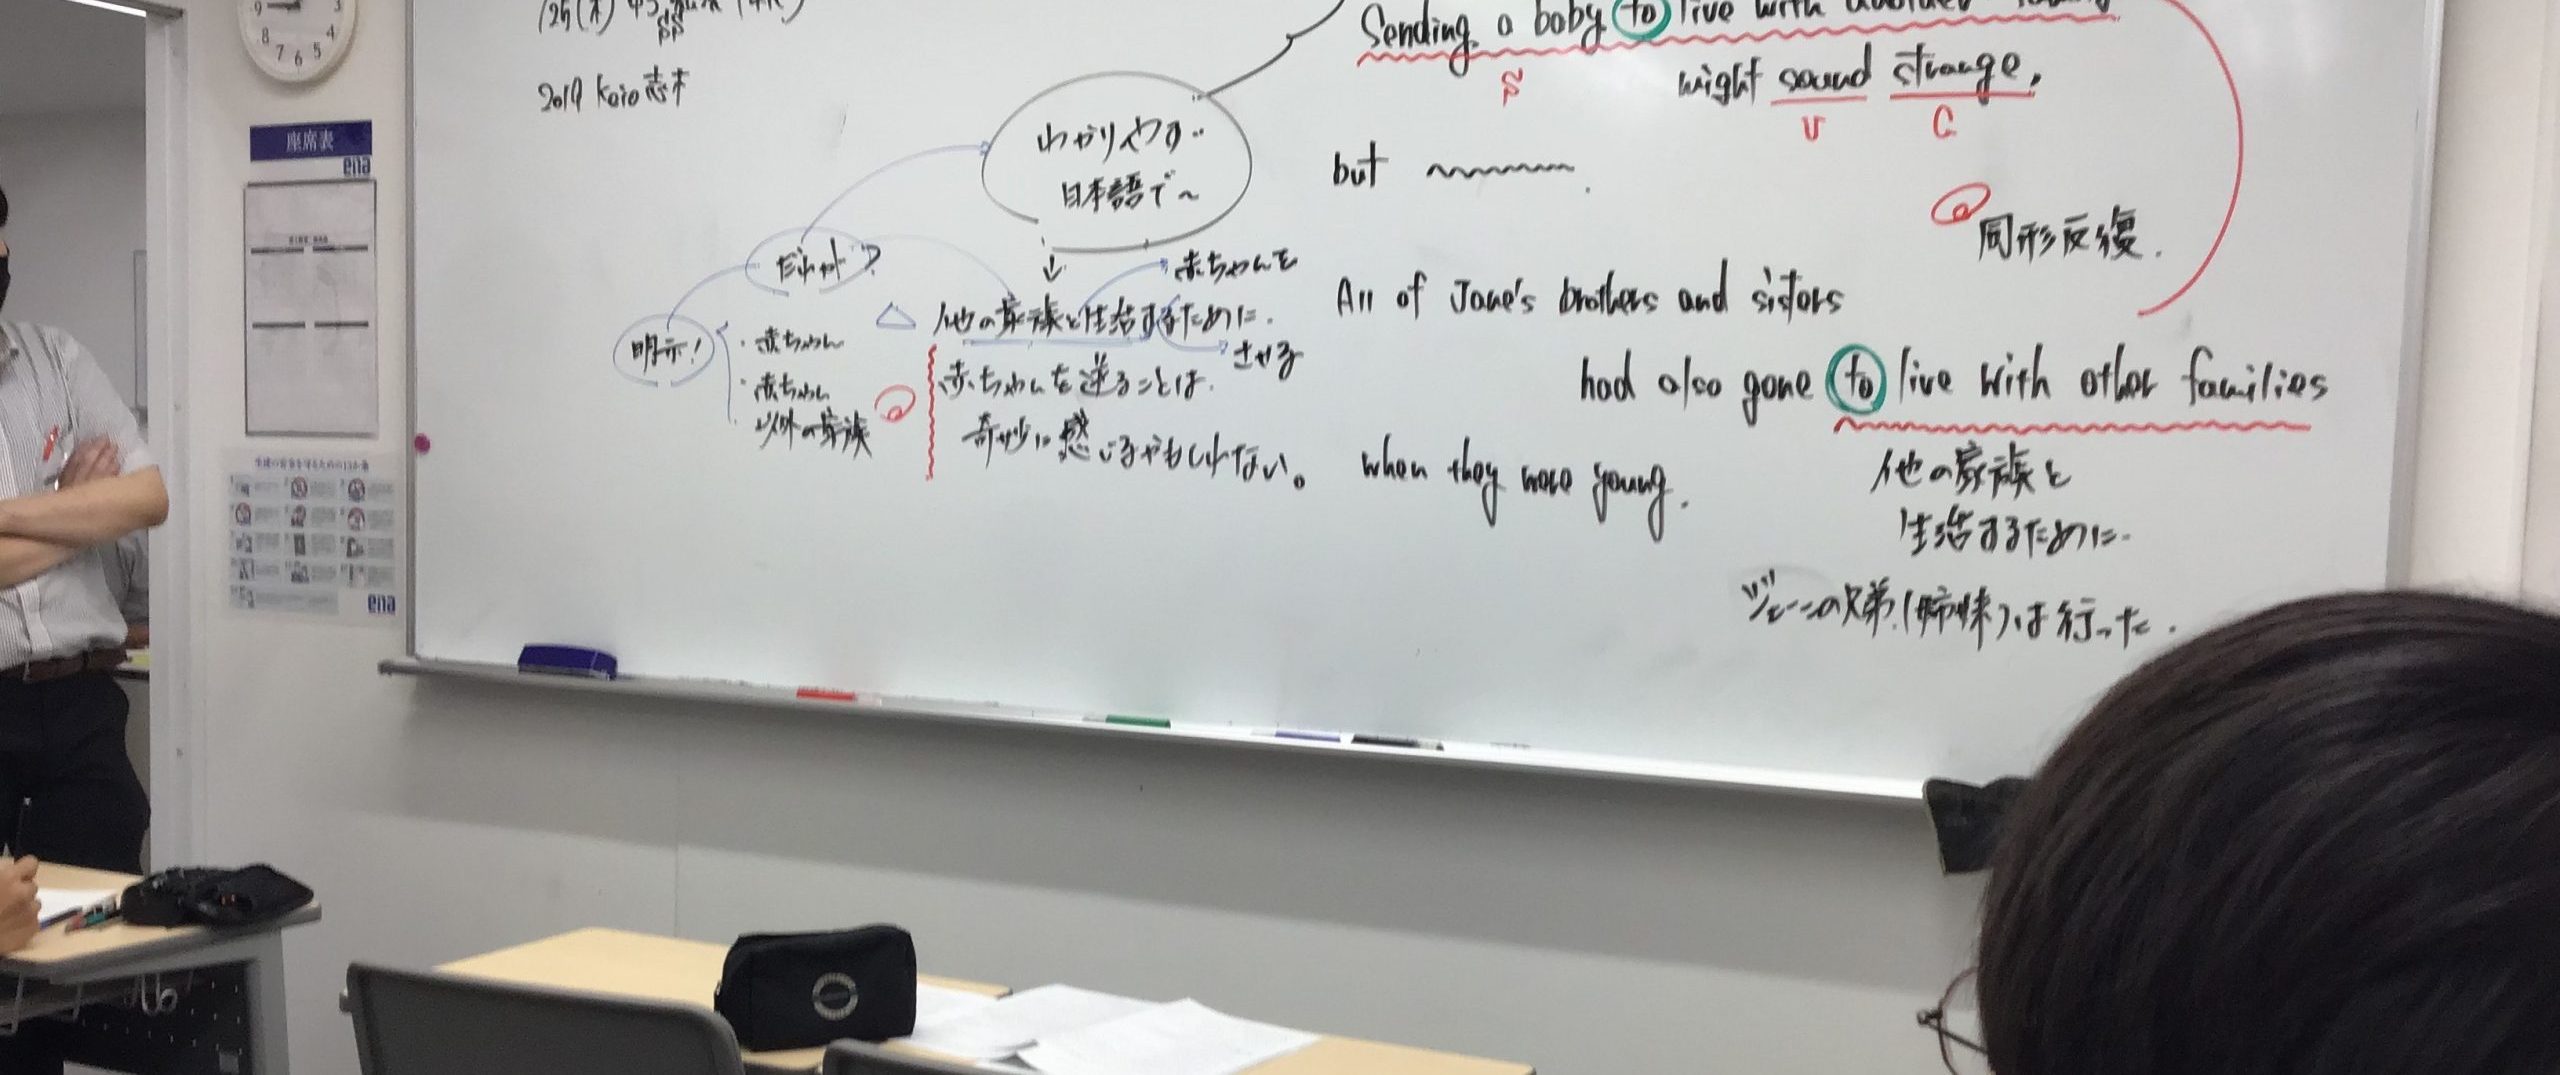 2019 Keio 志木
座席表
ena
ena
Sending a baby to live with
S
might sound strange,
V
C
but
同形反復.
わかりやすい
日本語で~
だれが?
明示!
・赤ちゃん
・赤ちゃん
以外の家族
赤ちゃんを
させる
△ 他の家族と生活するために.
赤ちゃんを送ることは.
奇妙に感じるかもしれない。
All of Jane's brothers and sisters
had also gone to live with other families
when they were young.
他の家族と
生活するために.
ジェーンの兄弟(姉妹)は行った.
9
8
7
6
5
4
3